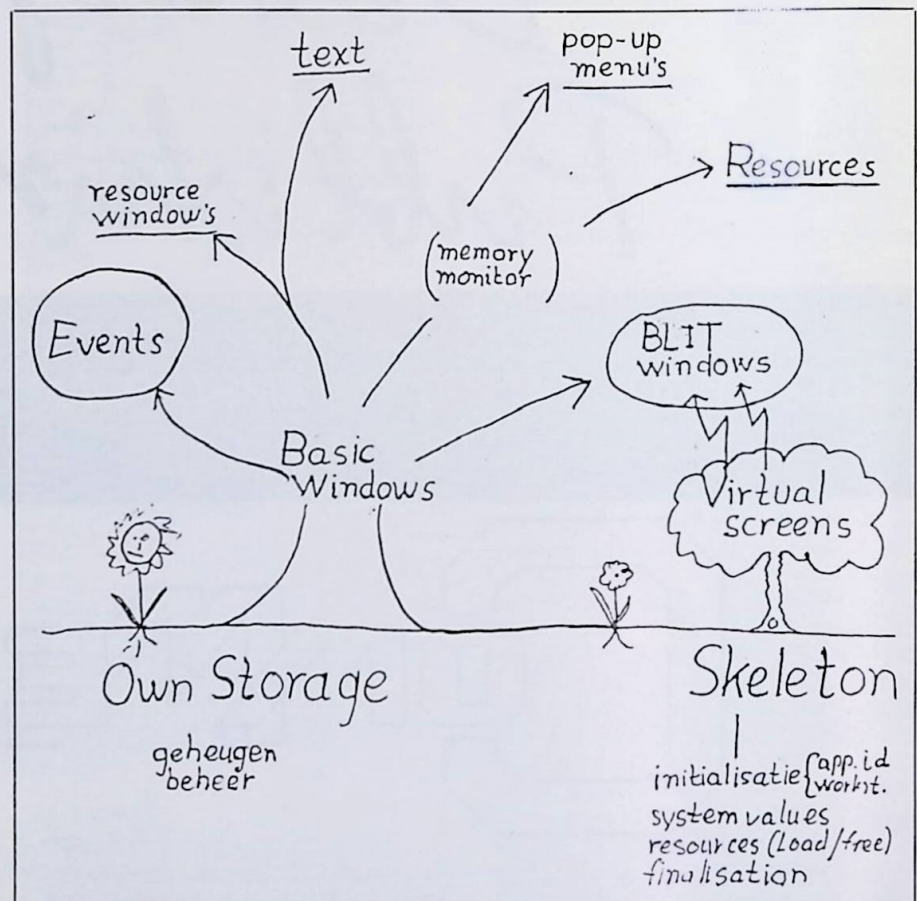 text
pop-up
menu's
Resources
resource
window's
(memory
monitor)
Events
BLIT
windows
Basic
Windows
Virtual
screens
Own Storage
Skeleton
geheugen
beheer
initialisatie { app.id
workst.
system values
resources (load/free)
finalisation